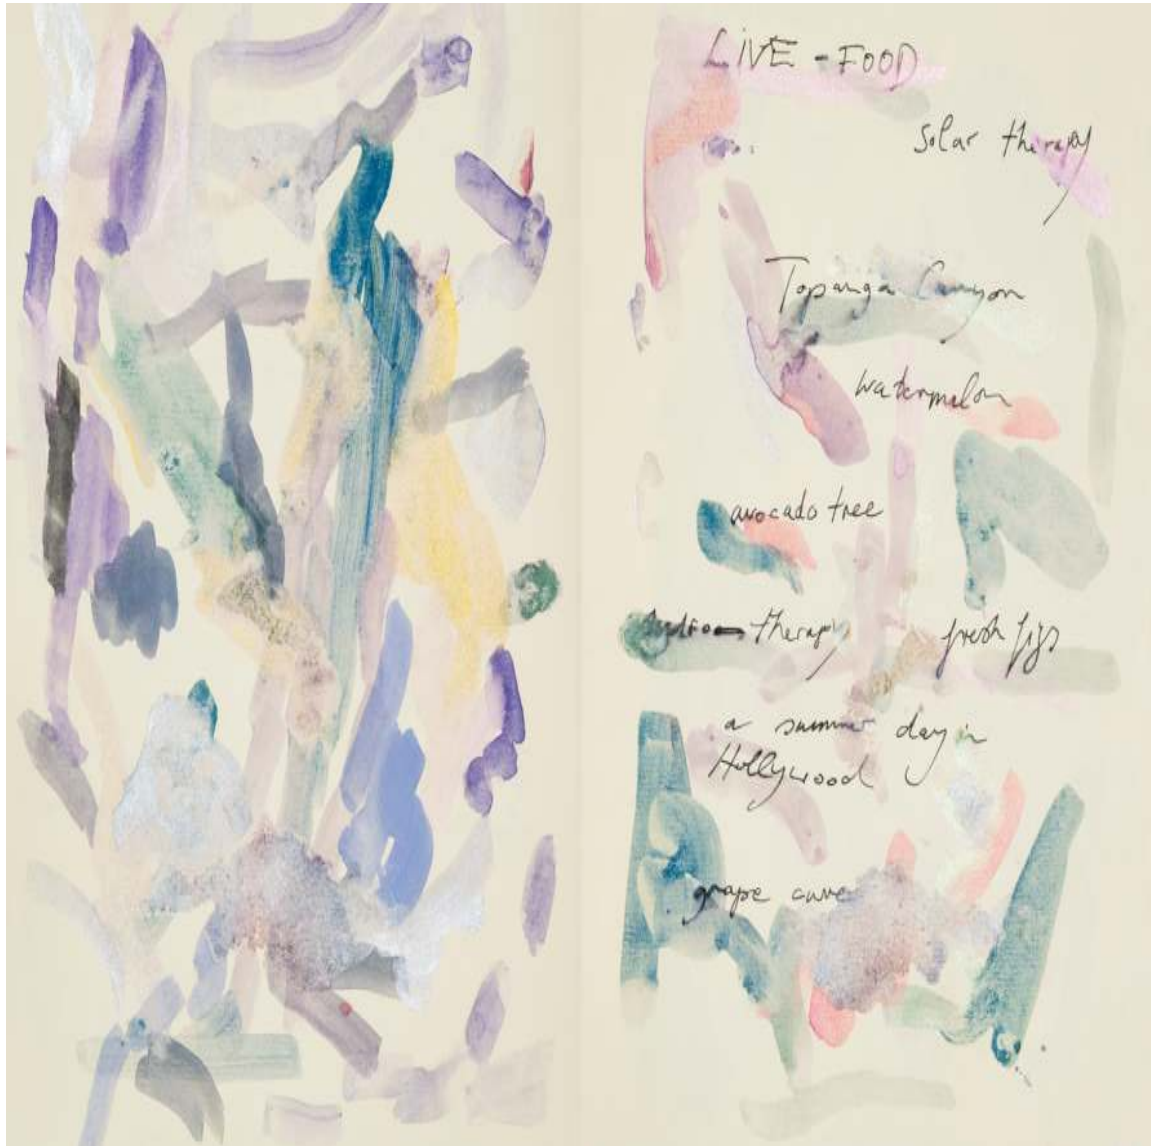 LIVE - FOOD
Solar therapy
Topanga Canyon
watermelon
avocado tree
therapy fresh figs
a summer day in
Hollywood
grape cure